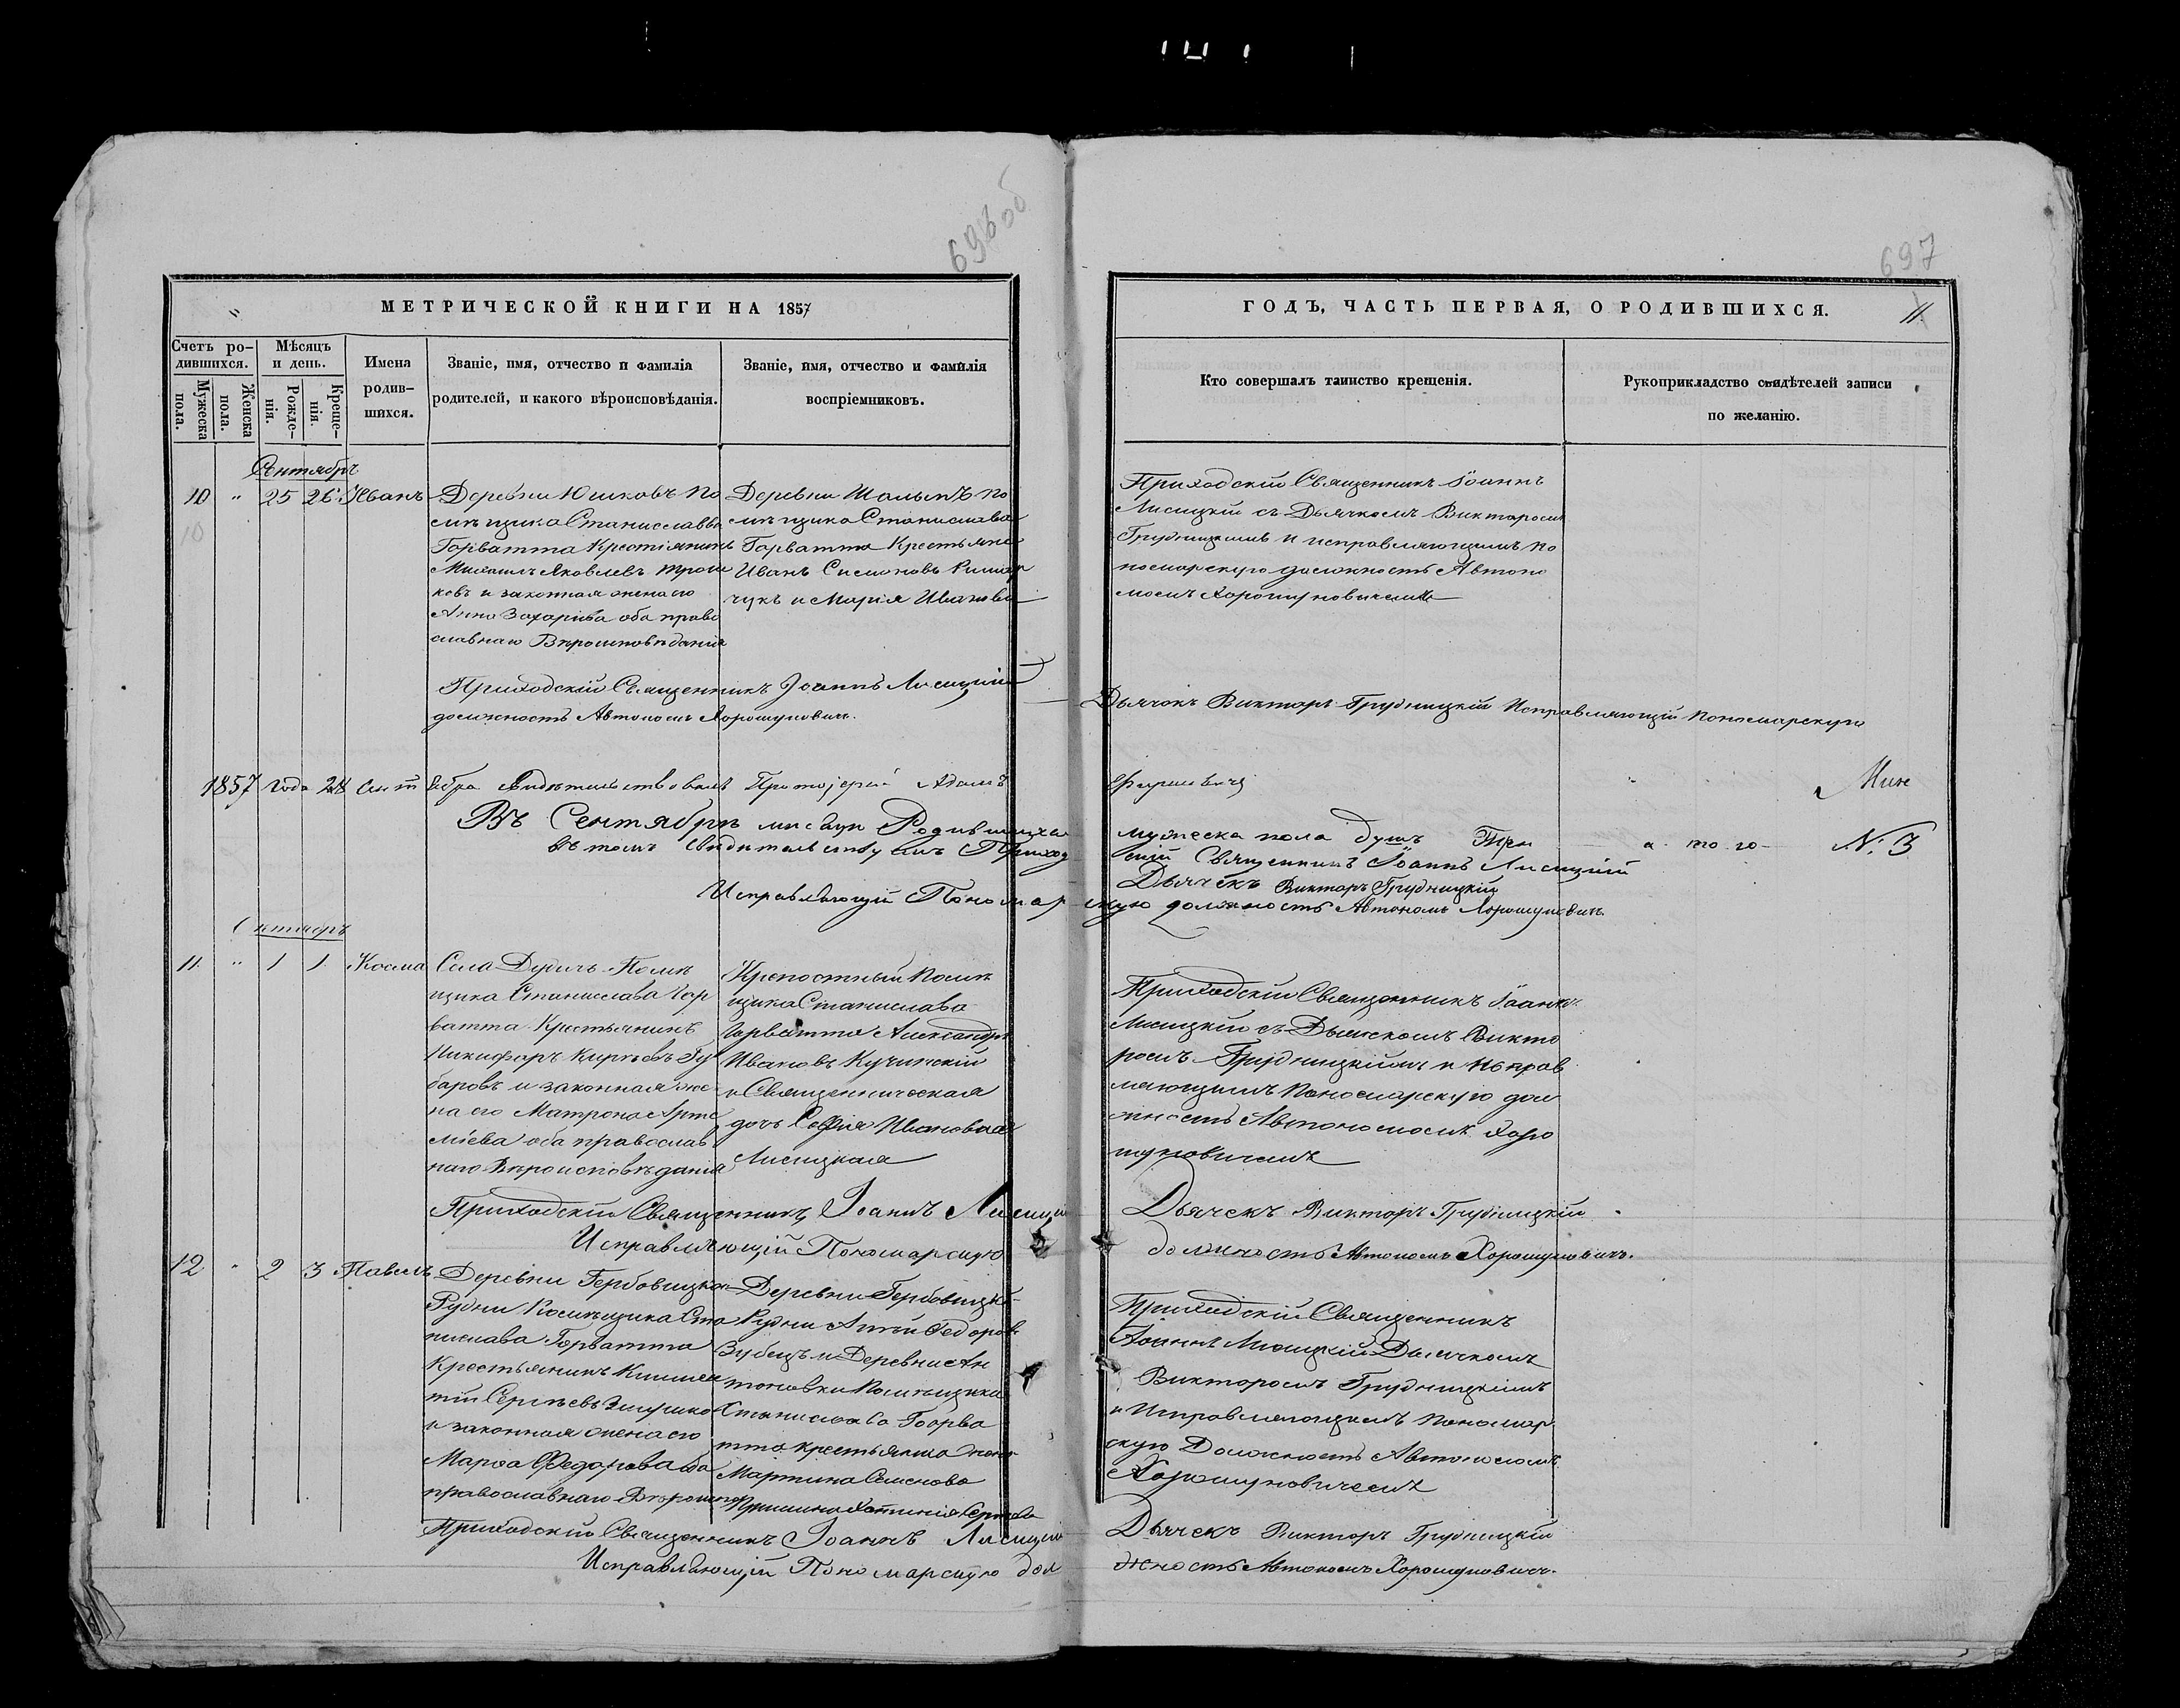 696 об
697
МЕТРИЧЕСКОЙ КНИГИ НА 1857
ГОДЪ, ЧАСТЬ ПЕРВАЯ, О РОДИВШИХСЯ.
11.
Счетъ ро-
дившихся.
Мужеска
пола.
Женска
пола.
Мѣсяцъ
и день.
Рожде-
нія.
Креще-
нія.
Имена
родив-
шихся.
Званіе, имя, отчество и фамилія
родителей, и какого вѣроисповѣданія.
Званіе, имя, отчество и фамилія
воспріемниковъ.
Кто совершалъ таинство крещенія.
Рукоприкладство свидѣтелей записи
по желанію.
Сентябрь
10 " 25 26 Иванъ
10
Деревни Юшковъ По
мѣщика Станислава
Горватта Крестіянинъ
Михаилъ Яковлевъ
и законная жена его
Анна Захаріева оба право
славнаго Вѣроисповѣданія
Деревни По
мѣщика Станислава
Горватта Крестьяне
Иванъ Симоновъ
чукъ и Марія Иванова
Приходскій Священникъ Іоаннъ
Лисицкій съ Дьячкомъ Викторомъ
Грудницкимъ и исправляющимъ по
номарскую должность Автоно
момъ Хорошуновичемъ
Приходскій Священникъ Іоаннъ Лисицкій
Дьячокъ Викторъ Грудницкій Исправляющій пономарскую
должность Автономъ Хорошуновичъ.
1857 года 28 Сентября Свидѣтельствовалъ Протоіерей Адамъ
Въ Сентябрѣ мѣсяцѣ Родившихся мужеска пола душъ Три а того N. 3
въ томъ свидѣтельствуемъ Приходскій Священникъ Іоаннъ Лисицкій
Дьячекъ Викторъ Грудницкій
Исправляющій Пономарскую должность Автономъ Хорошуновичъ
Октябрь
11. " 1 1 Косма
Села Дудичъ Помѣ
щика Станислава Гор
ватта Крестьянинъ
Никифоръ Гу
баровъ и законная же
на его Матрона Арте
міева оба православ
наго Вѣроисповѣданія
Крепостный Помѣ
щика Станислава
Горватта Александръ
Ивановъ Кучинскій
и Священническая
дочь Софія Ивановна
Лисицкая
Приходскій Священникъ Іоаннъ
Лисицкій съ Дьячкомъ Викто
ромъ Грудницкимъ и Исправ
ляющимъ Пономарскую дол
жность Автономомъ Хоро
шуновичемъ
Приходскій Священникъ Іоаннъ Лисицкій
Дьячекъ Викторъ Грудницкій
Исправляющій Пономарскую
должность Автономъ Хорошуновичъ.
12 " 2 3 Павелъ
Деревни Гербовицкой
Рудни Помѣщика Ста
нислава Горватта
Крестьянинъ
Сергѣевъ
и законная жена его
Марѳа Ѳедорова оба
православнаго
Деревни Гербовицкой
Рудни Ѳедоровъ
Зубецъ и Деревни Ан
тоновки Помѣщика
Станислава Горва
тта крестьянина жена
Мартина Семенова
Приходскій Священникъ
Іоаннъ Лисицкій Дьячкомъ
Викторомъ Грудницкимъ
и Исправляющимъ Пономар
скую Должность Автономомъ
Хорошуновичемъ
Приходскій Священникъ Іоаннъ Лисицкій
Дьячекъ Викторъ Грудницкій
Исправляющій Пономарскую дол
жность Автономъ Хорошуновичъ.